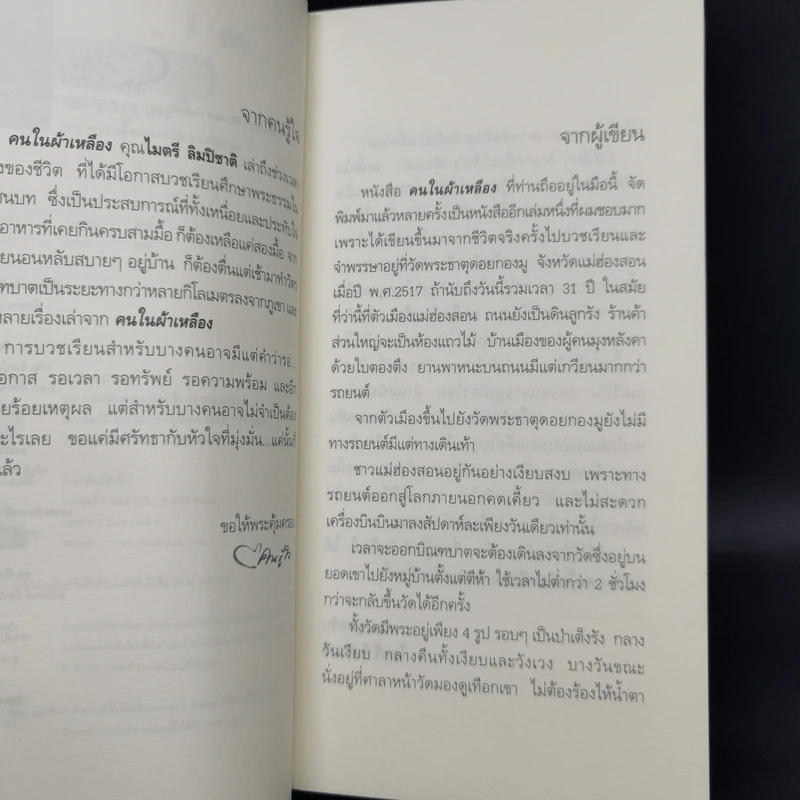 จากคนรู้ใจ
คนในผ้าเหลือง คุณไมตรี ลิมปิชาติ เล่าถึงช่วงเวลา
ของชีวิต ที่ได้มีโอกาสบวชเรียนศึกษาพระธรรมใน
ชนบท ซึ่งเป็นประสบการณ์ที่ทั้งเหนื่อยและประทับใจ
อาหารที่เคยกินครบสามมื้อ ก็ต้องเหลือแค่สองมื้อ จาก
ยนอนหลับสบายๆ อยู่บ้าน ก็ต้องตื่นแต่เช้ามาทำวัตร
ทบาตเป็นระยะทางกว่าหลายกิโลเมตรลงจากภูเขา และ
หลายเรื่องเล่าจาก คนในผ้าเหลือง
การบวชเรียนสำหรับบางคนอาจมีแต่คำว่ารอ...
อกาส รอเวลา รอทรัพย์ รอความพร้อม และอีก
ยร้อยเหตุผล แต่สำหรับบางคนอาจไม่จำเป็นต้อง
ะไรเลย ขอแค่มีศรัทธากับหัวใจที่มุ่งมั่น...แค่นั้นก็
แล้ว
ขอให้พระคุ้มครอง
จากผู้เขียน
หนังสือ คนในผ้าเหลือง ที่ท่านถืออยู่ในมือนี้ จัด
พิมพ์มาแล้วหลายครั้งเป็นหนังสืออีกเล่มหนึ่งที่ผมชอบมาก
เพราะได้เขียนขึ้นมาจากชีวิตจริงครั้งไปบวชเรียนและ
จำพรรษาอยู่ที่วัดพระธาตุดอยกองมู จังหวัดแม่ฮ่องสอน
เมื่อปี พ.ศ.2517 ถ้านับถึงวันนี้รวมเวลา 31 ปี ในสมัย
ที่ว่านี้ที่ตัวเมืองแม่ฮ่องสอน ถนนยังเป็นดินลูกรัง ร้านค้า
ส่วนใหญ่จะเป็นห้องแถวไม้ บ้านเมืองของผู้คนมุงหลังคา
ด้วยใบตองตึง ยานพาหนะบนถนนมีแต่เกวียนมากกว่า
รถยนต์
จากตัวเมืองขึ้นไปยังวัดพระธาตุดอยกองมูยังไม่มี
ทางรถยนต์มีแต่ทางเดินเท้า
ชาวแม่ฮ่องสอนอยู่กันอย่างเงียบสงบ เพราะทาง
รถยนต์ออกสู่โลกภายนอกคดเคี้ยว และไม่สะดวก
เครื่องบินบินมาลงสัปดาห์ละเพียงวันเดียวเท่านั้น
เวลาจะออกบิณฑบาตจะต้องเดินลงจากวัดซึ่งอยู่บน
ยอดเขาไปยังหมู่บ้านตั้งแต่ตีห้า ใช้เวลาไม่ต่ำกว่า 2 ชั่วโมง
กว่าจะกลับขึ้นวัดได้อีกครั้ง
ทั้งวัดมีพระอยู่เพียง 4 รูป รอบๆ เป็นป่าเต็งรัง กลาง
วันเงียบ กลางคืนทั้งเงียบและวังเวง บางวันขณะ
นั่งอยู่ที่ศาลาหน้าวัดมองดูเทือกเขา ไม่ต้องร้องไห้น้ำตา